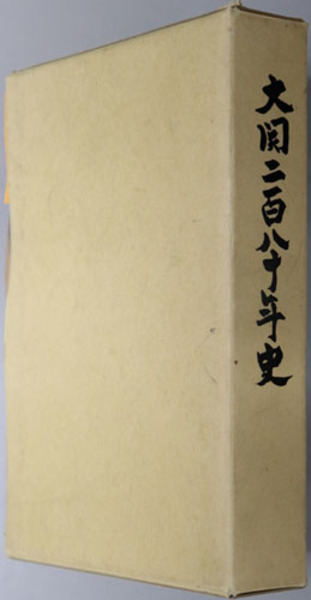 大関二百八十年史